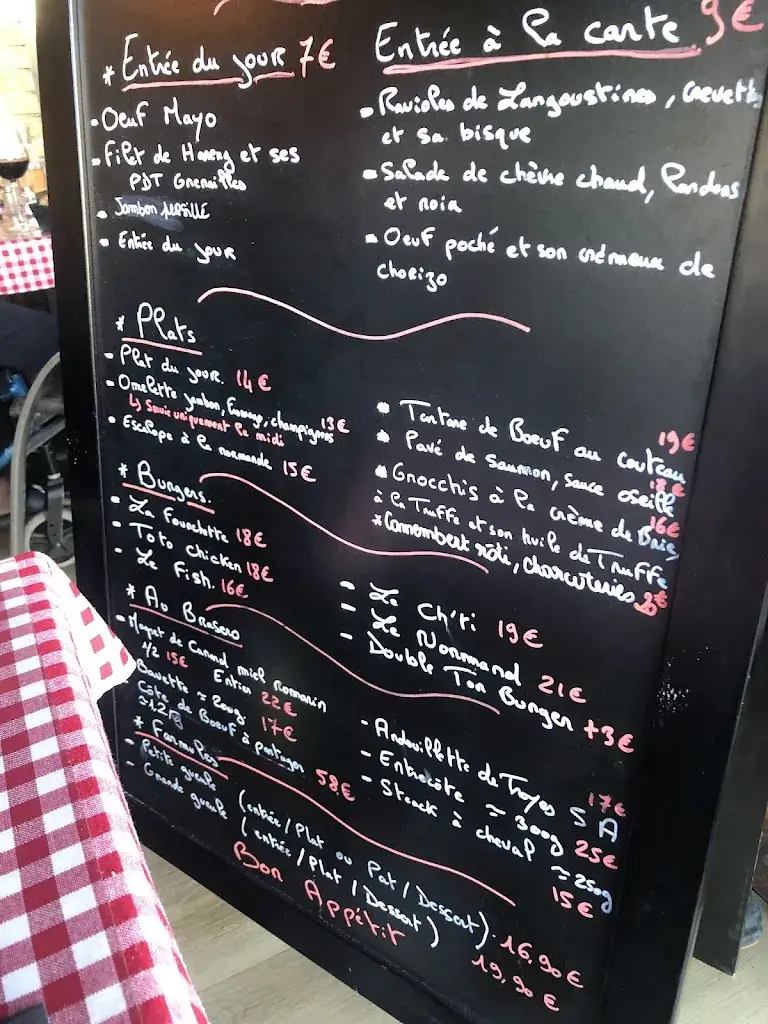 * Entrée du jour 7€
- Oeuf Mayo
- Filet de Hareng et ses
PDT Grenailles
- Jambon persillé
- Entrée du jour
Entrée à la carte 9€
- Ravioles de Langoustines, crevettes
et sa bisque
- Salade de chèvre chaud, Lardons
et noix
- Oeuf poché et son crémeux de
chorizo
* Plats
- Plat du jour. 14€
- Omelette jambon, fromage, champignons 13€
↳ Servie uniquement le midi
- Escalope à la normande 15€
* Tartare de Boeuf au couteau 19€
* Pavé de Saumon, sauce oseille 18€
* Gnocchis à la crème de Brie 16€
à la Truffe et son huile de Truffe
* Camembert rôti, charcuteries
* Burgers.
- La Fourchette 18€
- Toto Chicken 18€
- Le Fish. 16€
- Le Ch'ti 19€
- Le Normand 21€
- Double Ton Burger +3€
* Au Brasero
- Magret de Canard miel romarin
1/2 15€ Entier 22€
Bavette ≈ 200g 17€
Côte de Boeuf à partager
≈ 1.2 kg 58€
- Andouillette de Troyes 5A 17€
- Entrecôte ≈ 300g 25€
- Steack à cheval ≈ 250g 15€
* Formules
- Petite gueule (entrée / Plat ou Pat / Dessert). 16,90€
- Grande gueule (entrée / Plat / Dessert) 19,90€
Bon Appétit